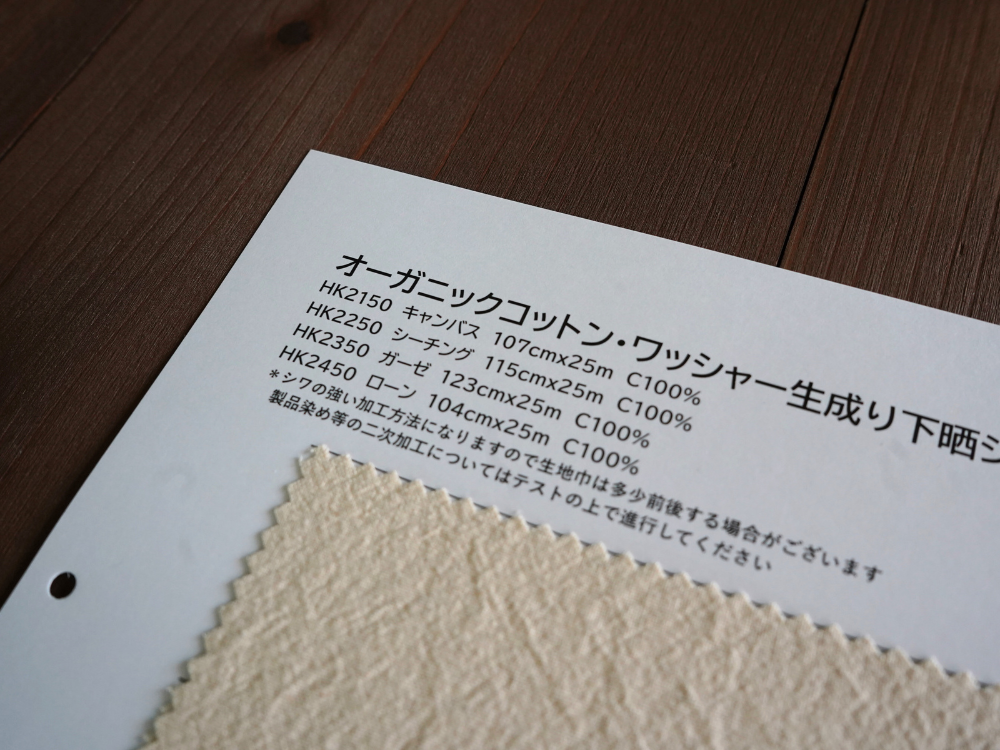 オーガニックコットン・ワッシャー生成り下晒シ
HK2150 キャンバス 107cmx25m C100%
HK2250 シーチング 115cmx25m C100%
HK2350 ガーゼ 123cmx25m C100%
HK2450 ローン 104cmx25m C100%
*シワの強い加工方法になりますので生地巾は多少前後する場合がございます
製品染め等の二次加工についてはテストの上で進行してください